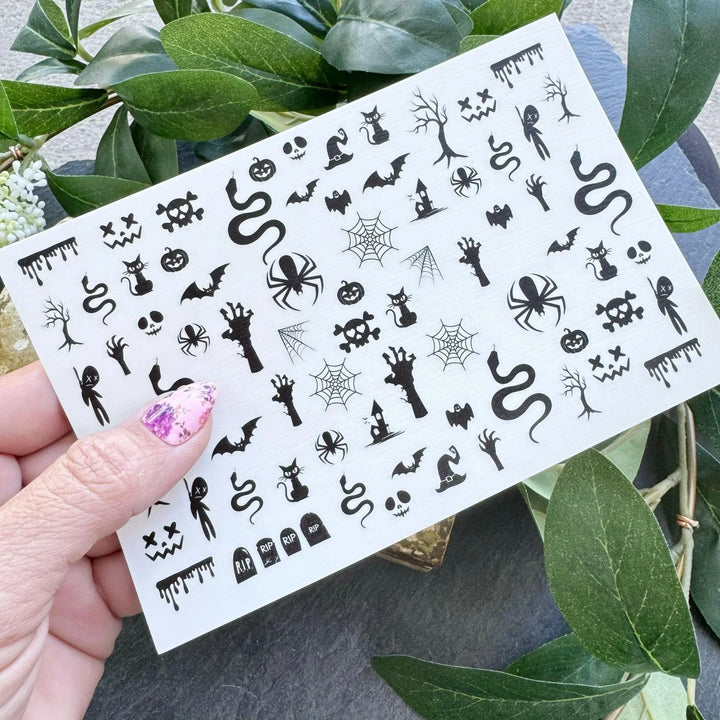 RIP
RIP
RIP
RIP